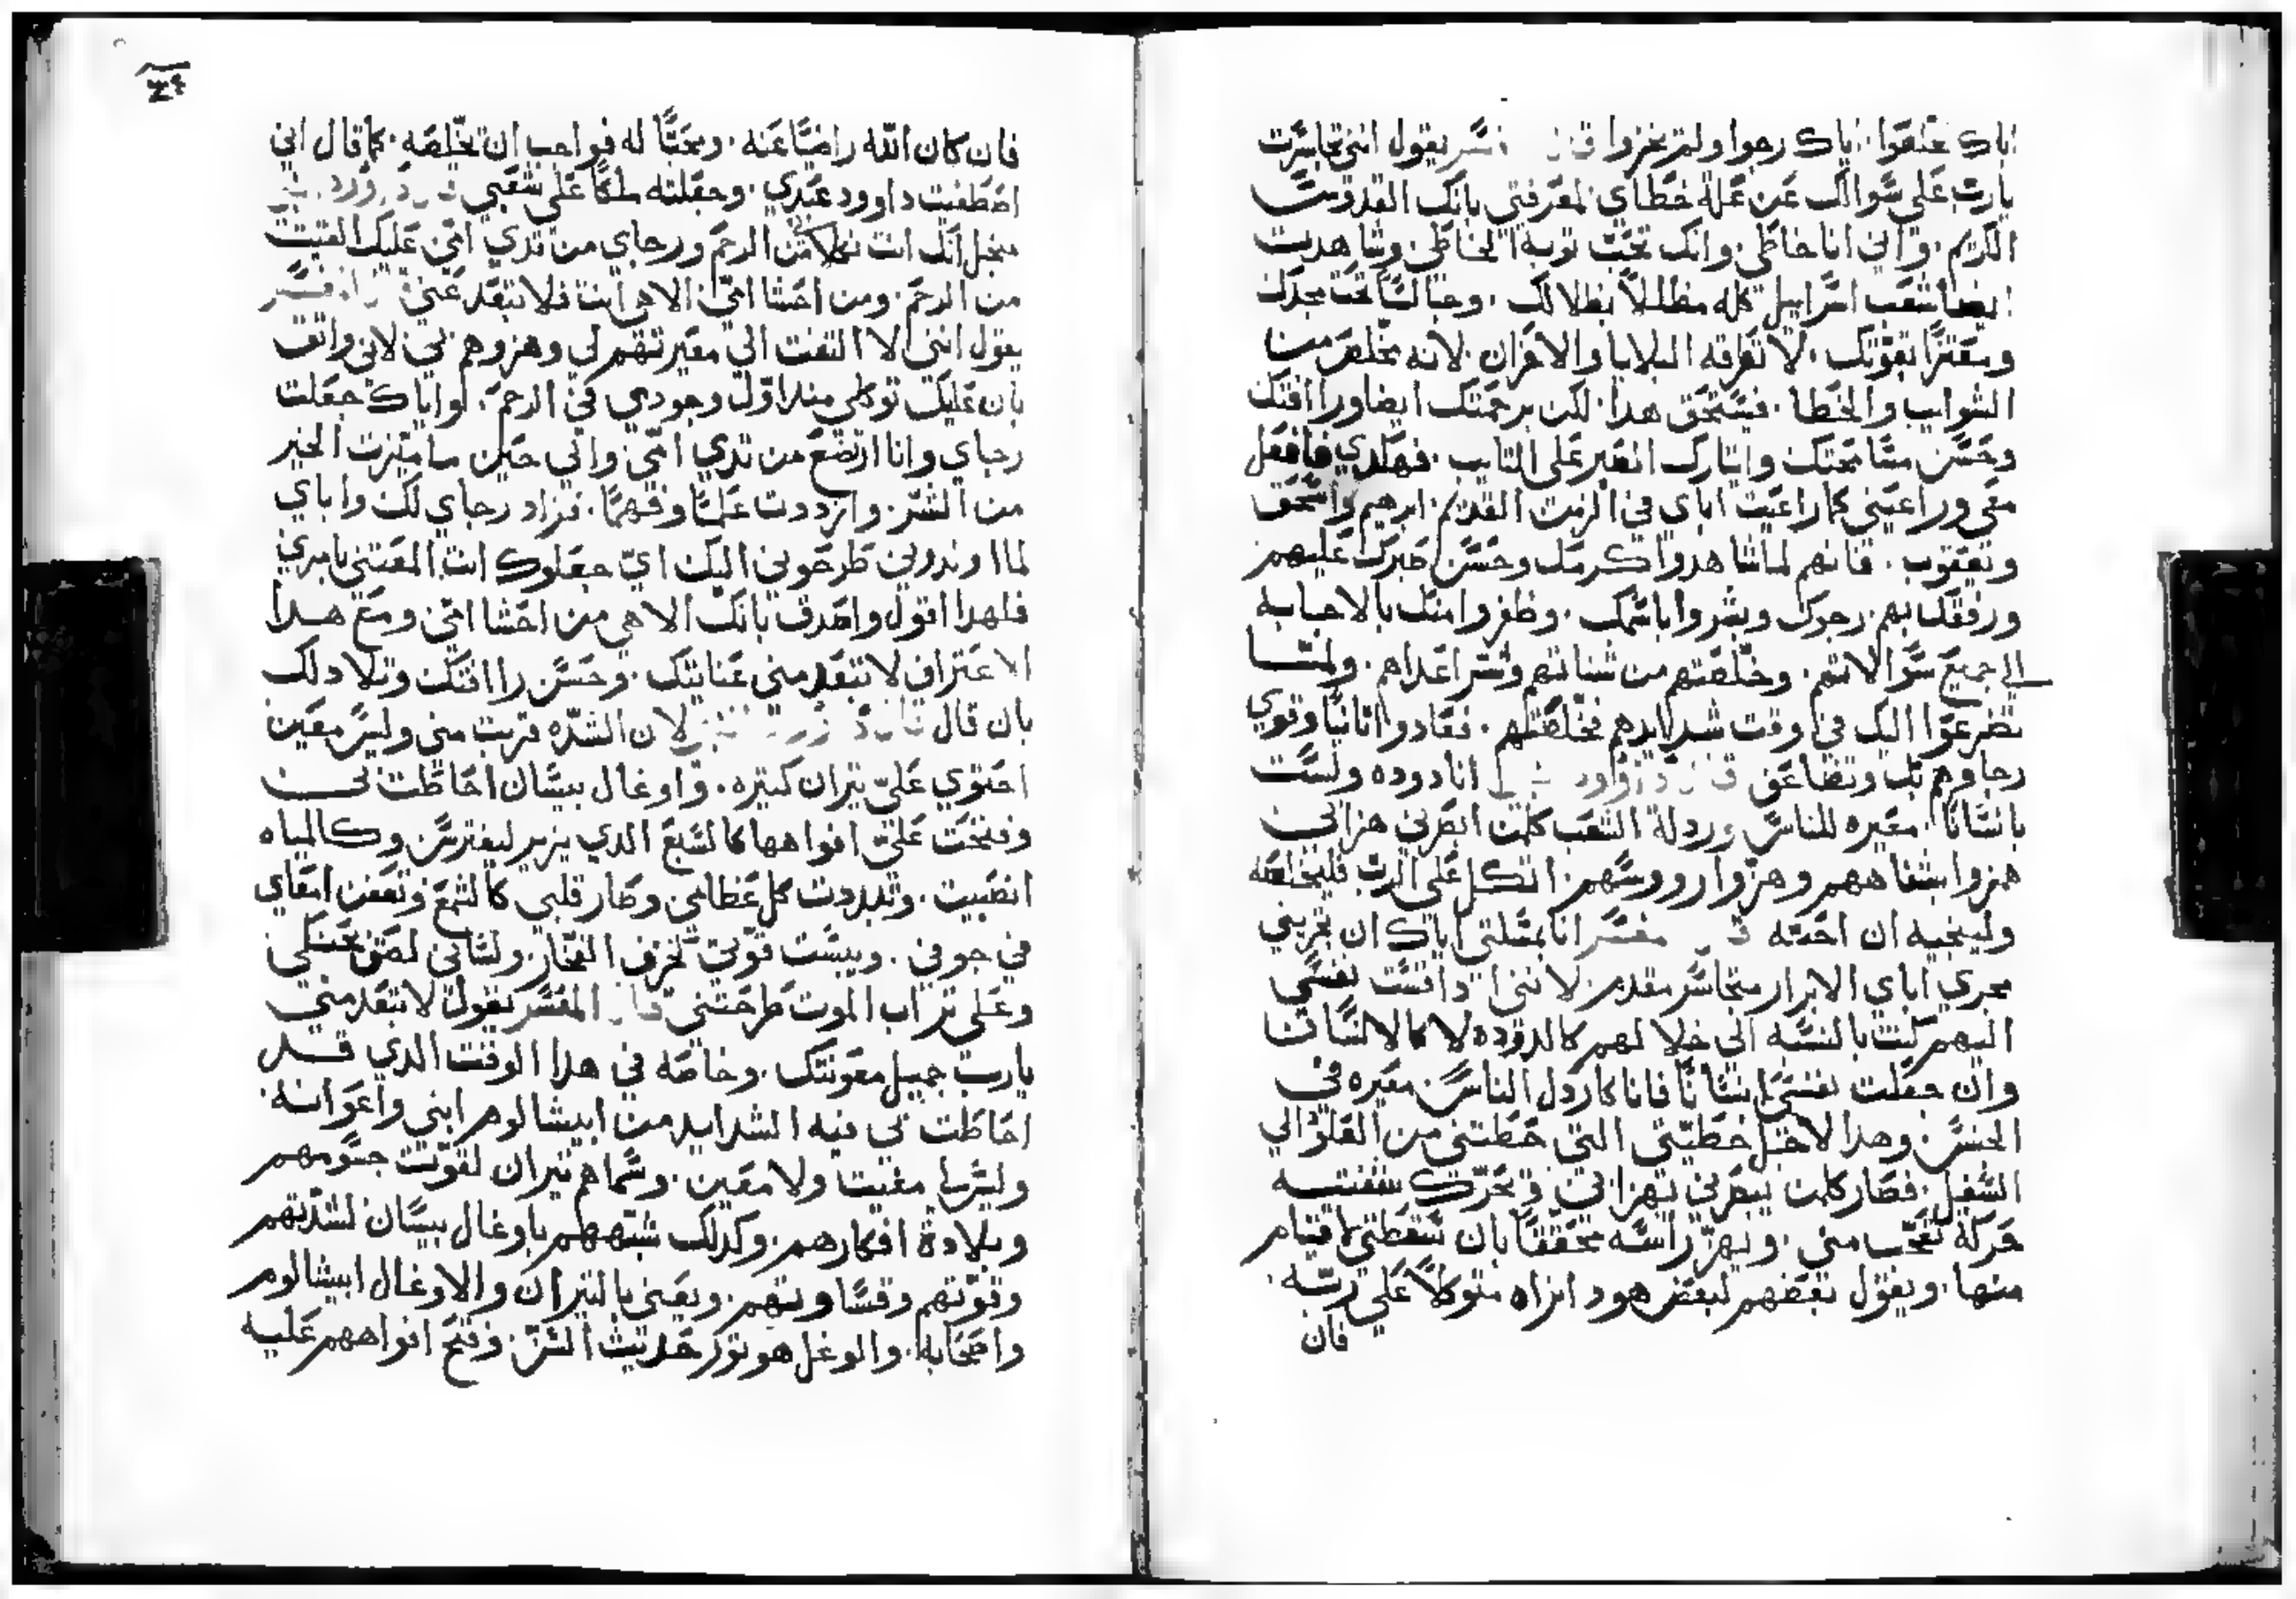 اباك عتقوا. اياك رجوا ولم يخزوا قال المفسر يقول انني تجاسرت
يارب على سوالك عن غلة خطاي لمعرفتي بانك القدوس
الكريم. واني انا خاطي. وانك تحب توبة الخاطي. وشاهدت
ايضا شعب اسراييل كله مظللاً بظلالك. وجالساً تحت مجدك
ومعتزاً بقوتك. لا تعرقه البلايا والاحزان. لانه مخلص من
الشوايب والخطا. فيستحق هدا. لكن برحمتك ايضا ورافتك
وحسن مسامحتك وايثارك الغير على التايب. فهكدي فافعل
معي وراعيني كما راعيت اباي في الزمن القديم. ابرهيم واسحق
ويعقوب. فانهم لما شاهدوا كرمك وحسن صبرك عليهم
ورفقك بهم. رجوك وبشروا باسمك. وظفروا منك بالاجابه
الى جميع سوالاتهم. وخلصتهم من شنااتهم وشر اعداهم. ولما
تضرعوا اليك في اوقت شدايدهم فخلصتهم. فعادوا ثانياً وقوي
رجاوهم بك وتضاعق قال داوود انا دوده ولست
بانسانا. معيره للناس وردلة الشعب كلمن ابصرني هزا بي
همزوا بشفاههم وهزوا رووسهم. اتكل على الرب فليخلصه
ولينجيه ان احبه قال مفسر انا بمسلتي اياك ان تجريني
مجري اباي الابرار متجاسر مقدم. لانني ادا قست نفسي
اليهم كنت بالنسبه الى خلالهم كالدوده لا كالانسان
وان جعلت نفسي انساناً فانا كاردل الناس. معيره في
الجنس. وهدا لاجل خطيتي التي حطتني من العلو الي
السفل. فصار كلمن يبصرني يهزا بي وتحرك شفتيه
حركة تعجب مني. ويهز راسه محققاً بان سقطتي لا قيام
منها. ويقول بعضهم لبعض هودا نراه متوكلاً على ربه.
فان
٣٤
فان كان الله راضياً عنه. ومحباً له فواجب ان تخلصه. كما قال اني
اصطفيت داوود عبدي. وجعلته ملكاً على شعبي قال داوود
منجل انك انت نكلا من الرحم ورجاي من تدي امي عليك القيت
من الرحم. ومن احشا امي الاهي انت فلا تبعد عني قال المفسر
يقول انني لا التفت الي معيرتهم لي وهزوهم بي لاني واتق
بان عليك توكلي مند اول وجودي في الرحم. واياك جعلت
رجاي وانا ارتضع من تدي امي واني حين ما ميزت الخير
من الشر. وازددت علماً وفهماً. فزاد رجاي لك واباي
لما اوندوني طرحوني اليك اي جعلوك انت المعتني بامري
فلهدا اقول واصدق بانك الاهي من احشا امي ومع هدا
الاعتراف لا تبعد مني عنايتك. وحسن رافتك وتلا دلك
بان قال لان الشده قربت مني وليس معين
احتوي علي تيران كتيره. واوغال بيسان احاطت بي
وفتحت علي افواهها كالسبع الدي يزير ليفترس وكالمياه
انصبيت. وتبددت كل عظامي وصار قلبي كالشمع وتععن امعاي
في جوفي. ويبست قوتي كخزف الفخار. ولساني لصق بحنكي
وعلى تراب الموت طرحتني قال المفسر يقول لا تبعد مني
يارب جميل معونتك. وخاصه في هدا الوقت الدي قد
احاطت بي فيه الشدايد من ابيشالوم ابني واعوانه.
وليس لي مغيت ولا معين. وسماهم تيران لقوت جسومهم
وبلادة افكارهم. وكدلك شبههم باوغال بيسان لشدتهم
وقوتهم وقساوتهم. ويعني بالتيران والاوغال ابيشالوم
واصحابه. والوغل هو تور حديث السن. وفتح افواههم عليه